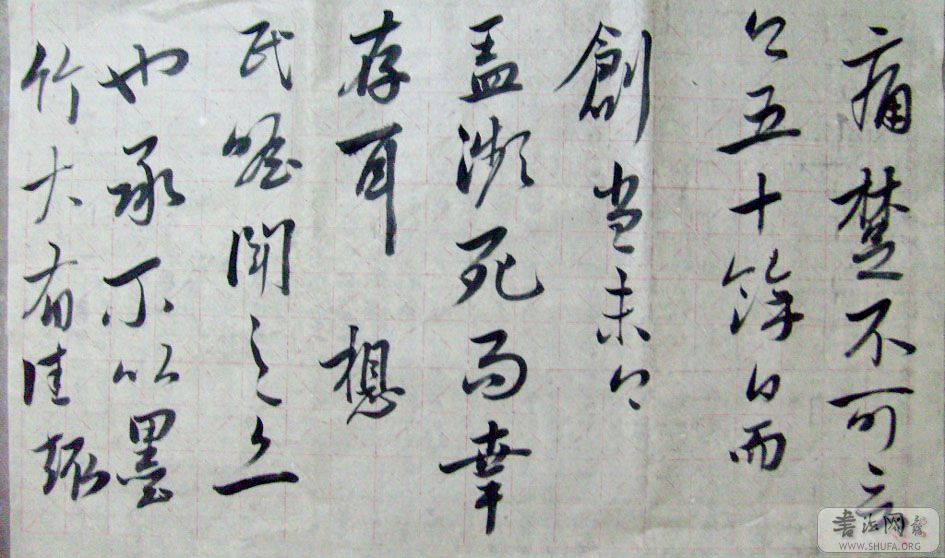 痛楚不可言
今五十餘日而
創尚未合
蓋瀕死而幸
存耳 想
民瞻聞之
也承示以墨
竹大有佳趣
書法網
WWW.SHUFA.ORG